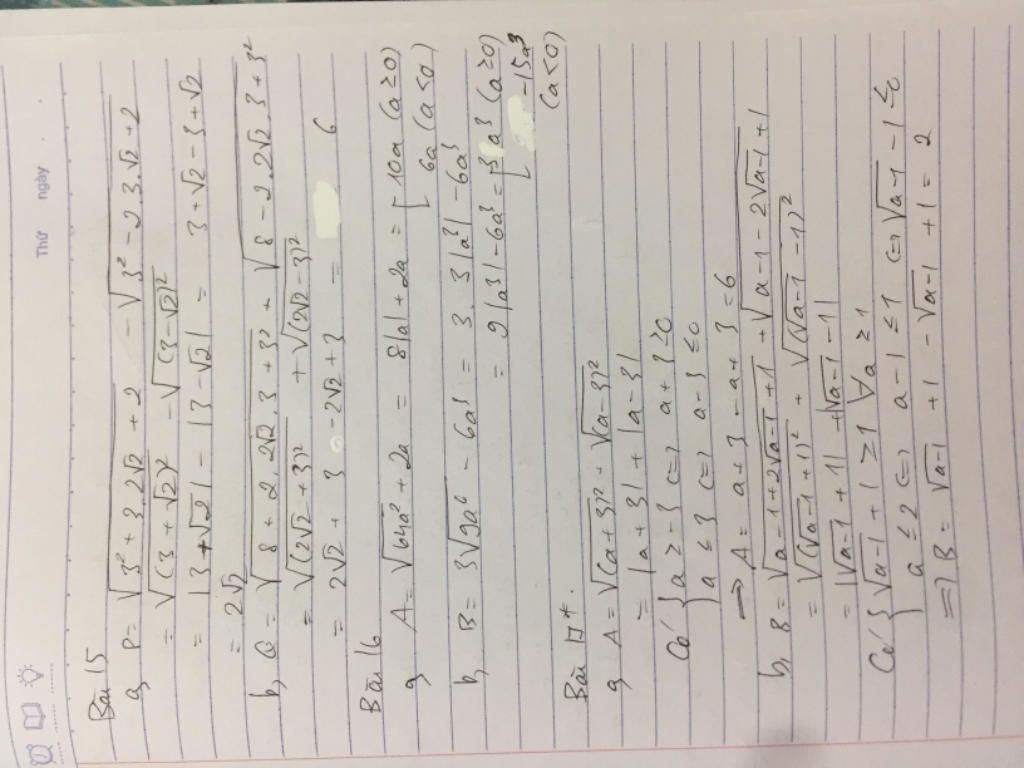 Thứ ngày
Bài 15
a, P = √(3² + 3.2√2 + 2) - √(3² - 2.3.√2 + 2)
= √((3 + √2)²) - √((3 - √2)²)
= |3 + √2| - |3 - √2| = 3 + √2 - 3 + √2
= 2√2
b, Q = √(8 + 2.2√2.3 + 3²) + √(8 - 2.2√2.3 + 3²)
= √((2√2 + 3)²) + √((2√2 - 3)²)
= 2√2 + 3 - 2√2 + 3 = 6
Bài 16
a, A = √(64a²) + 2a = 8|a| + 2a = [ 10a (a ≥ 0)
6a (a < 0)
b, B = 3√(9a⁶) - 6a³ = 3.3|a³| - 6a³
= 9|a³| - 6a³ = [ 3a³ (a ≥ 0)
-15a³
(a < 0)
Bài 17*.
a, A = √((a + 3)²) + √((a - 3)²)
= |a + 3| + |a - 3|
Có { a ≥ -3 <=> a + 3 ≥ 0
a ≤ 3 <=> a - 3 ≤ 0
→ A = a + 3 - a + 3 = 6
b, B = √(a - 1 + 2√(a - 1) + 1) + √(a - 1 - 2√(a - 1) + 1)
= √((√(a - 1) + 1)²) + √((√(a - 1) - 1)²)
= |√(a - 1) + 1| + |√(a - 1) - 1|
Có { √(a - 1) + 1 ≥ 1 ∀a ≥ 1
a ≤ 2 <=> a - 1 ≤ 1 <=> √(a - 1) - 1 ≤ 0
=> B = √(a - 1) + 1 - √(a - 1) + 1 = 2